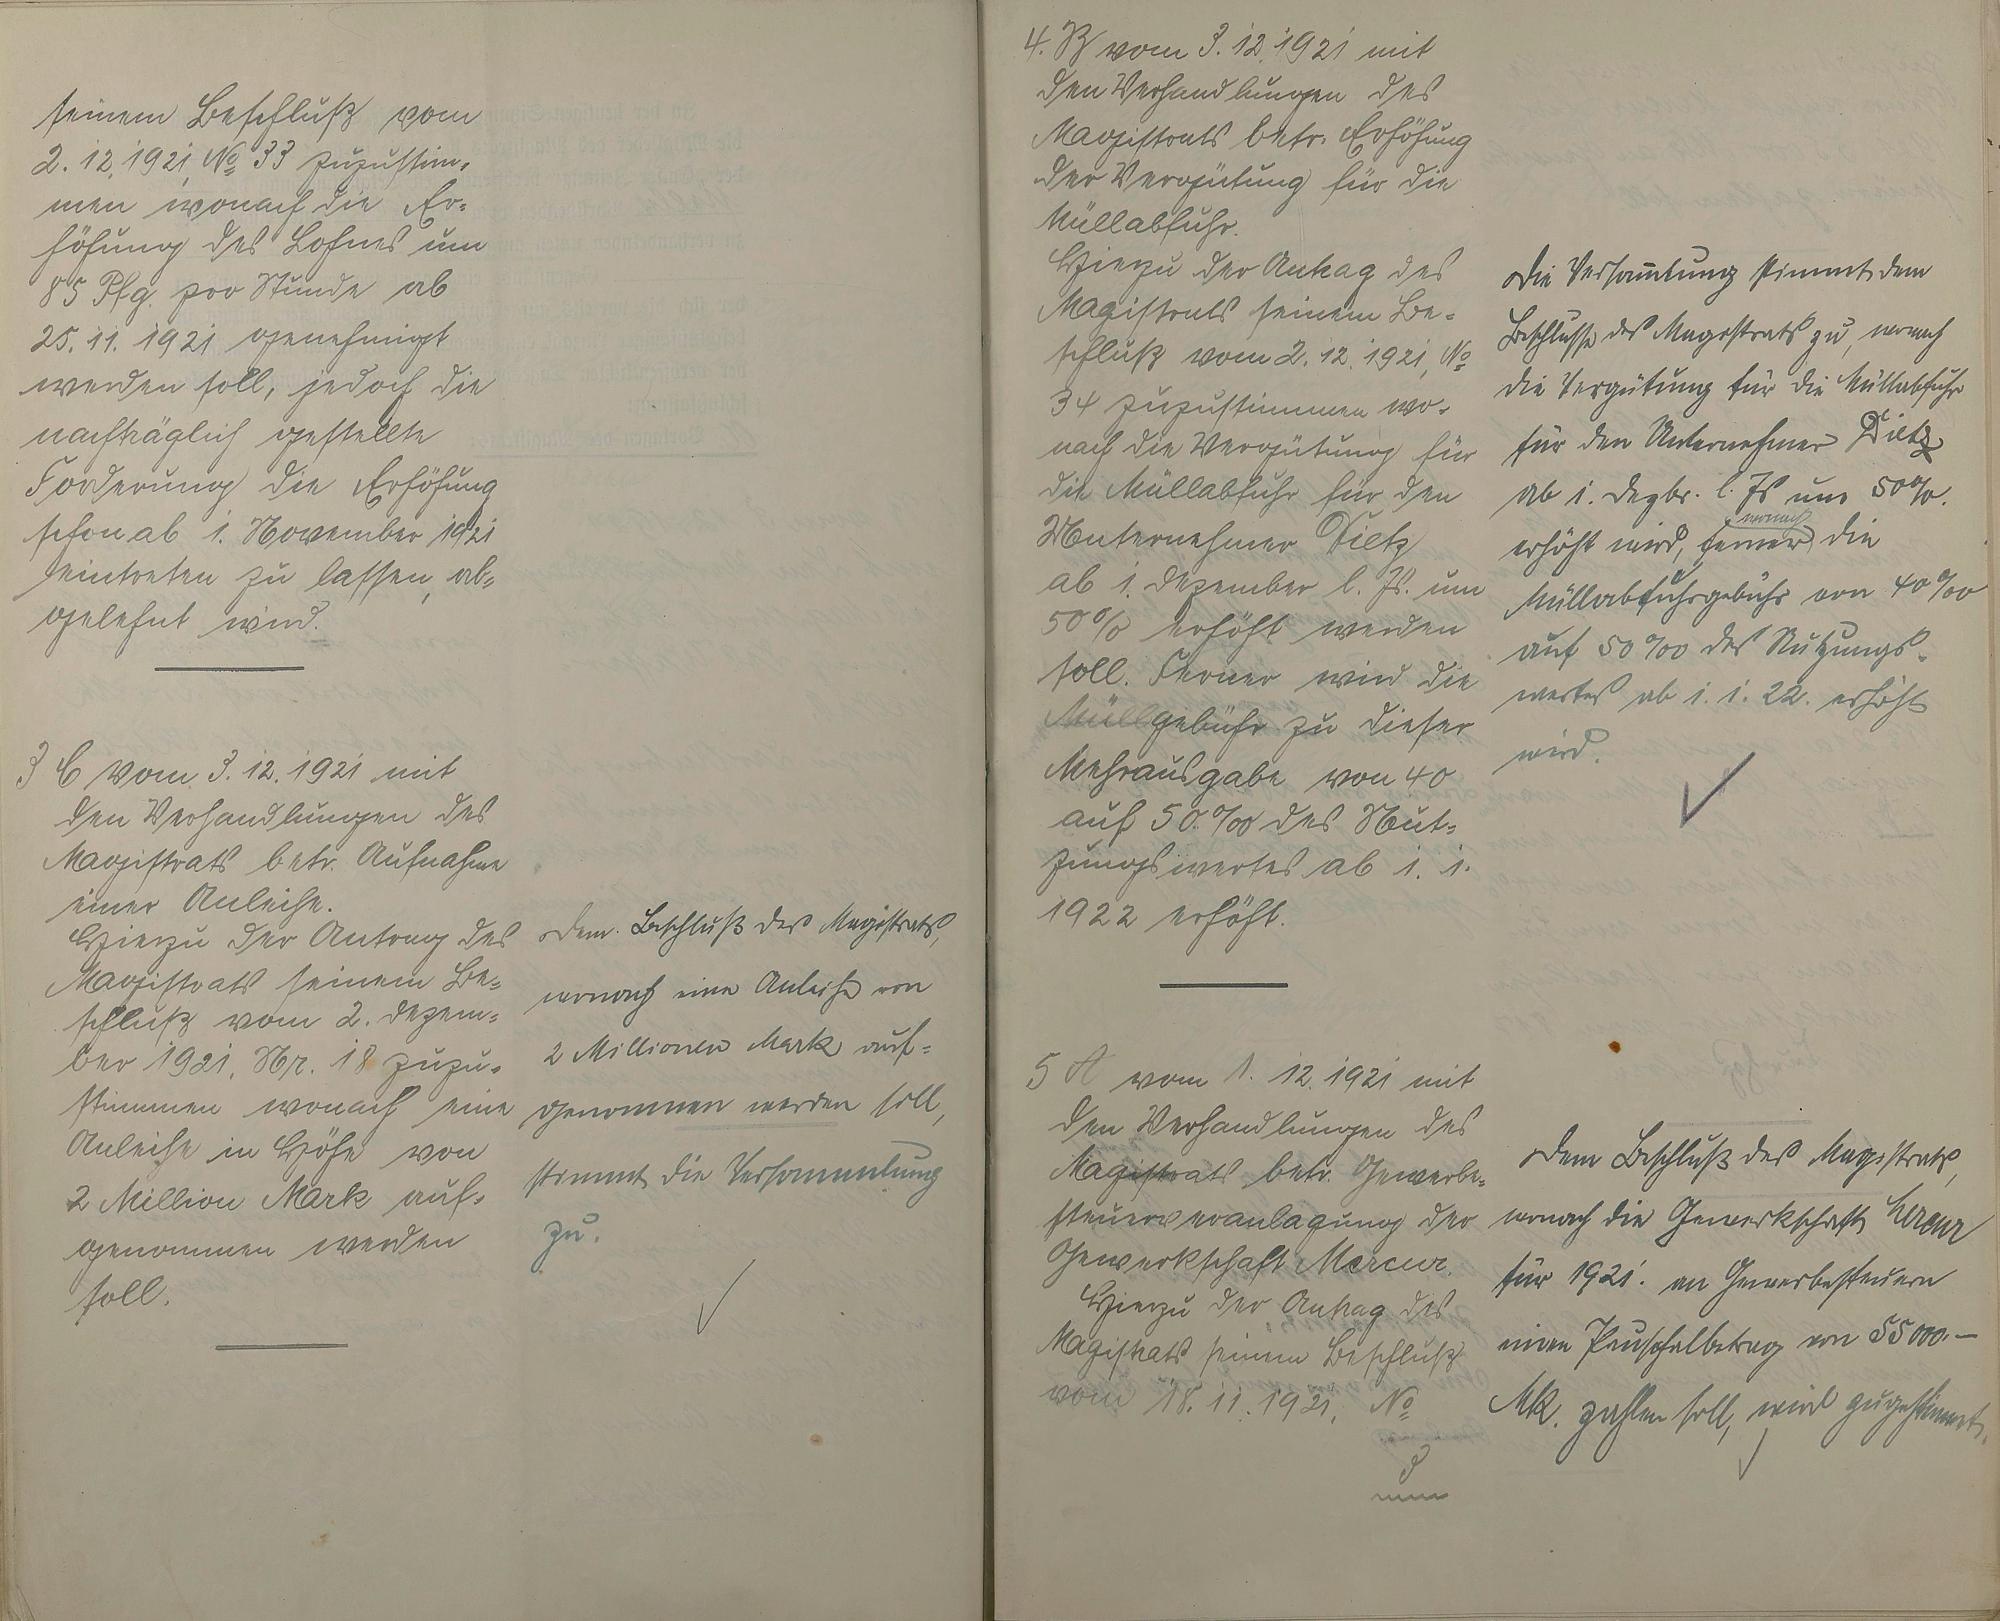 seinem Beschluß vom
2.12.1921 No 33 zuzustim-
men wonach die Er-
höhung des Lohnes um
85 Pfg. pro Stunde ab
25.11.1921 genehmigt
werden soll, jedoch die
nachträglich gestellte
Forderung die Erhöhung
schon ab 1. November 1921
eintreten zu lassen, ab-
gelehnt wird.
3 C vom 3.12.1921 mit
den Verhandlungen des
Magistrats betr. Aufnahme
einer Anleihe.
Hierzu der Antrag des
Magistrats seinem Be-
schluß vom 2. Dezem-
ber 1921. Nr. 18 zuzu-
stimmen wonach eine
Anleihe in Höhe von
2 Million Mark auf-
genommen werden
soll.
Dem Beschluß des Magistrats,
wonach eine Anleihe von
2 Millionen Mark auf-
genommen werden soll,
stimmt die Versammlung
zu.
4. B vom 3.12.1921 mit
den Verhandlungen des
Magistrats betr. Erhöhung
der Vergütung für die
Müllabfuhr.
Hierzu der Antrag des
Magistrats seinem Be-
schluß vom 2.12.1921, No
34 zuzustimmen wo-
nach die Vergütung für
die Müllabfuhr für den
Unternehmer Dietz
ab 1. Dezember l. Js. um
50% erhöht werden
soll. Ferner wird die
Müllgebühr zu dieser
Mehrausgabe von 40
auf 50 ‰ des Nut-
zungswertes ab 1.1.
1922 erhöht.
Die Versammlung stimmt dem
Beschlusse des Magistrats zu, wonach
die Vergütung für die Müllabfuhr
für den Unternehmer Dietz
ab 1. Dezbr. l. Js um 50%.
wonach
erhöht wird, ferner die
Müllabfuhrgebühr von 40 ‰
auf 50 ‰ des Nutzungs-
wertes ab 1.1.22. erhöht
wird.
5 A vom 1.12.1921 mit
den Verhandlungen des
Magistrats betr. Gewerbe-
steuerveranlagung der
Gewerkschaft Mercur.
Hierzu der Antrag des
Magistrats seinem Beschluß
vom 18.11.1921, No
3
Dem Beschluß des Magistrats,
wonach die Gewerkschaft Mercur
für 1921. an Gewerbesteuern
einen Pauschalbetrag von 55000.-
Mk. zahlen soll, wird zugestimmt.